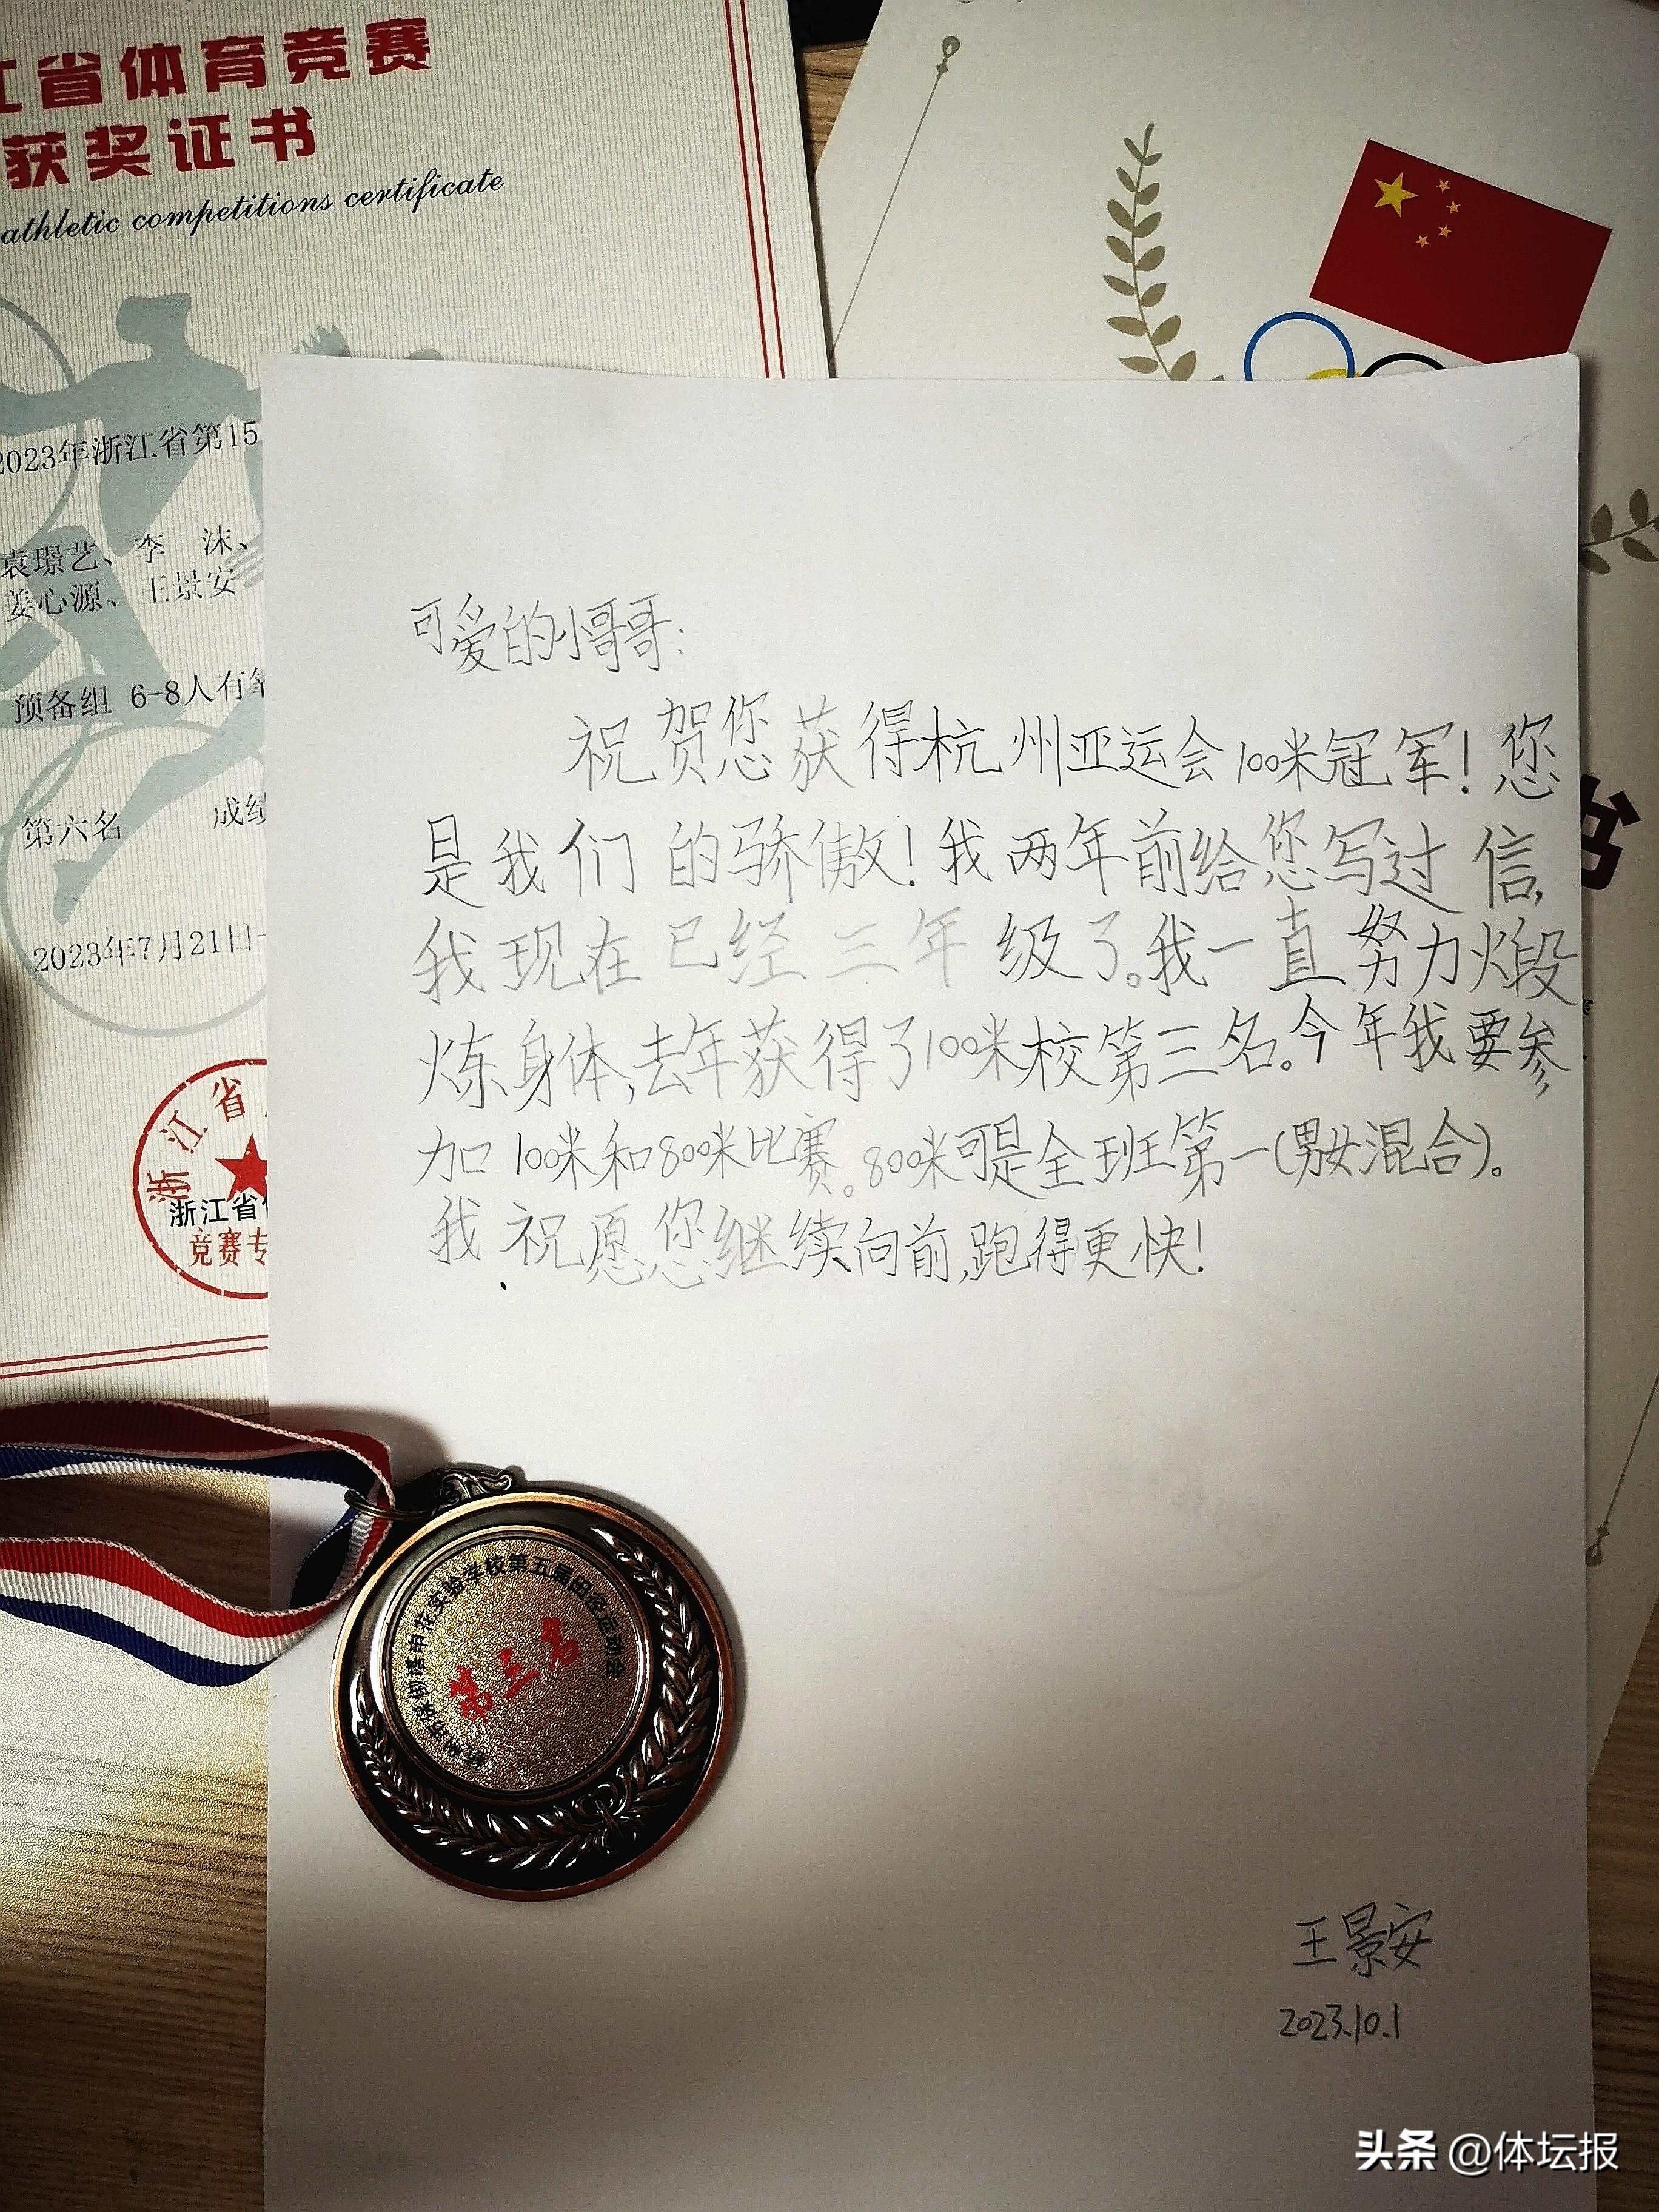 江省体育竞赛
获奖证书
athletic competitions certificate
2023年浙江省第15
袁璟艺、李 沫、
姜心源、王景安
预备组 6-8人有氧
第六名 成绩
2023年7月21日-
浙江省
浙江省体
竞赛专
书
可爱的小哥哥：
祝贺您获得杭州亚运会100米冠军！您
是我们的骄傲！我两年前给您写过信，
我现在已经三年级了。我一直努力煅
炼身体，去年获得了100米校第三名。今年我要参
加100米和800米比赛。800米可是全班第一（男女混合）。
我祝愿您继续向前，跑得更快！
杭州市莫干山路申花实验学校第五届田径运动会
第三名
王景安
2023.10.1
头条 @体坛报